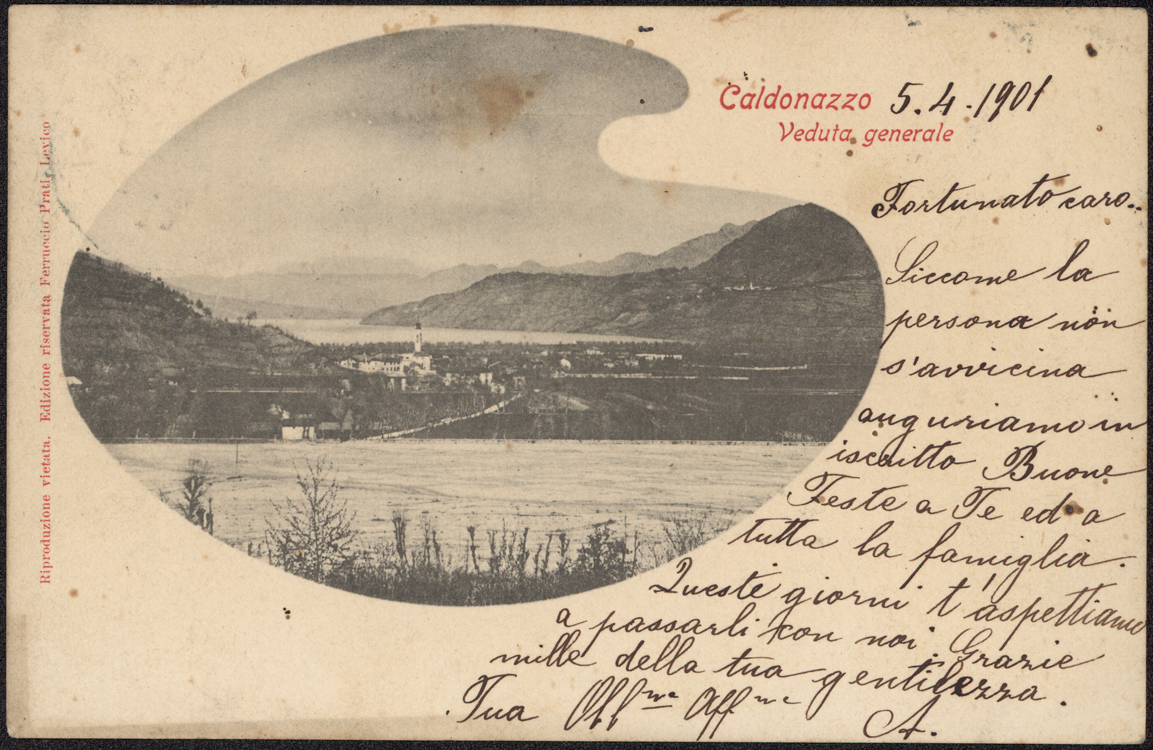 Caldonazzo 5.4.1901
Veduta generale
Riproduzione vietata. Edizione riservata Ferruccio Prati, Levico
Fortunato caro..
Siccome la
persona non
s'avvicina
auguriamo in
iscritto Buone
Feste a Te ed a
tutta la famiglia.
Queste giorni t'aspettiamo
a passarli con noi. Grazie
mille della tua gentilezza.
Tua Aff
A.